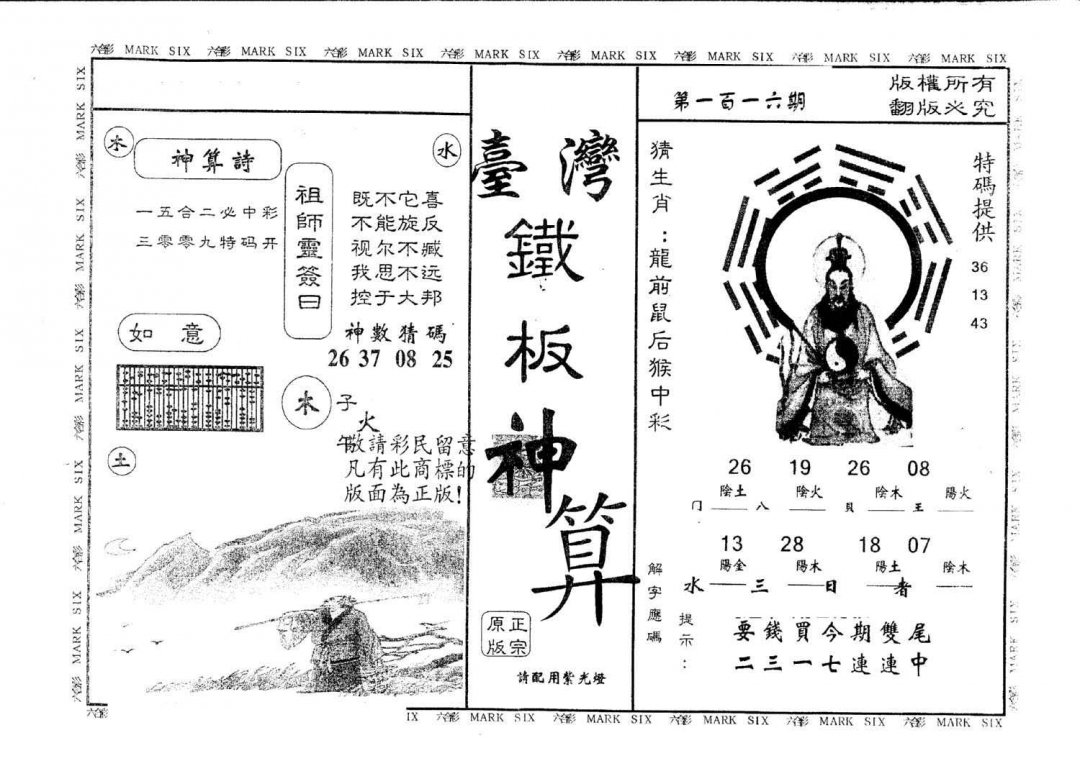 六彩 MARK SIX 六彩 MARK SIX 六彩 MARK SIX 六彩 MARK SIX 六彩 MARK SIX 六彩 MARK SIX 六彩 MARK SIX 六彩 MARK SIX
版權所有
翻版必究
第一百一六期
木
神算詩
水
一五合二必中彩
三零零九特码开
祖師靈簽曰
既不它喜
不能旋反
视尔不臧
我思不远
控于大邦
神數猜碼
26 37 08 25
如意
木
子
火
午
土
敬請彩民留意
凡有此商標的
版面為正版!
臺灣
鐵
板
神
算
正宗
原版
請配用紫光燈
猜生肖:龍前鼠后猴中彩
特碼提供
36
13
43
26 19 26 08
陰土 陰火 陰木 陽火
门 八 貝 王
13 28 18 07
陽金 陽木 陽土 陰木
水 三 日 者
解字應碼
提示:
要錢買今期雙尾
二三一七連連中
IX 六彩 MARK SIX 六彩 MARK SIX 六彩 MARK SIX 六彩 MARK SIX 六彩 MARK SIX
六彩
MARK SIX 六彩 MARK SIX 六彩 MARK SIX 六彩 MARK SIX 六彩 MARK SIX